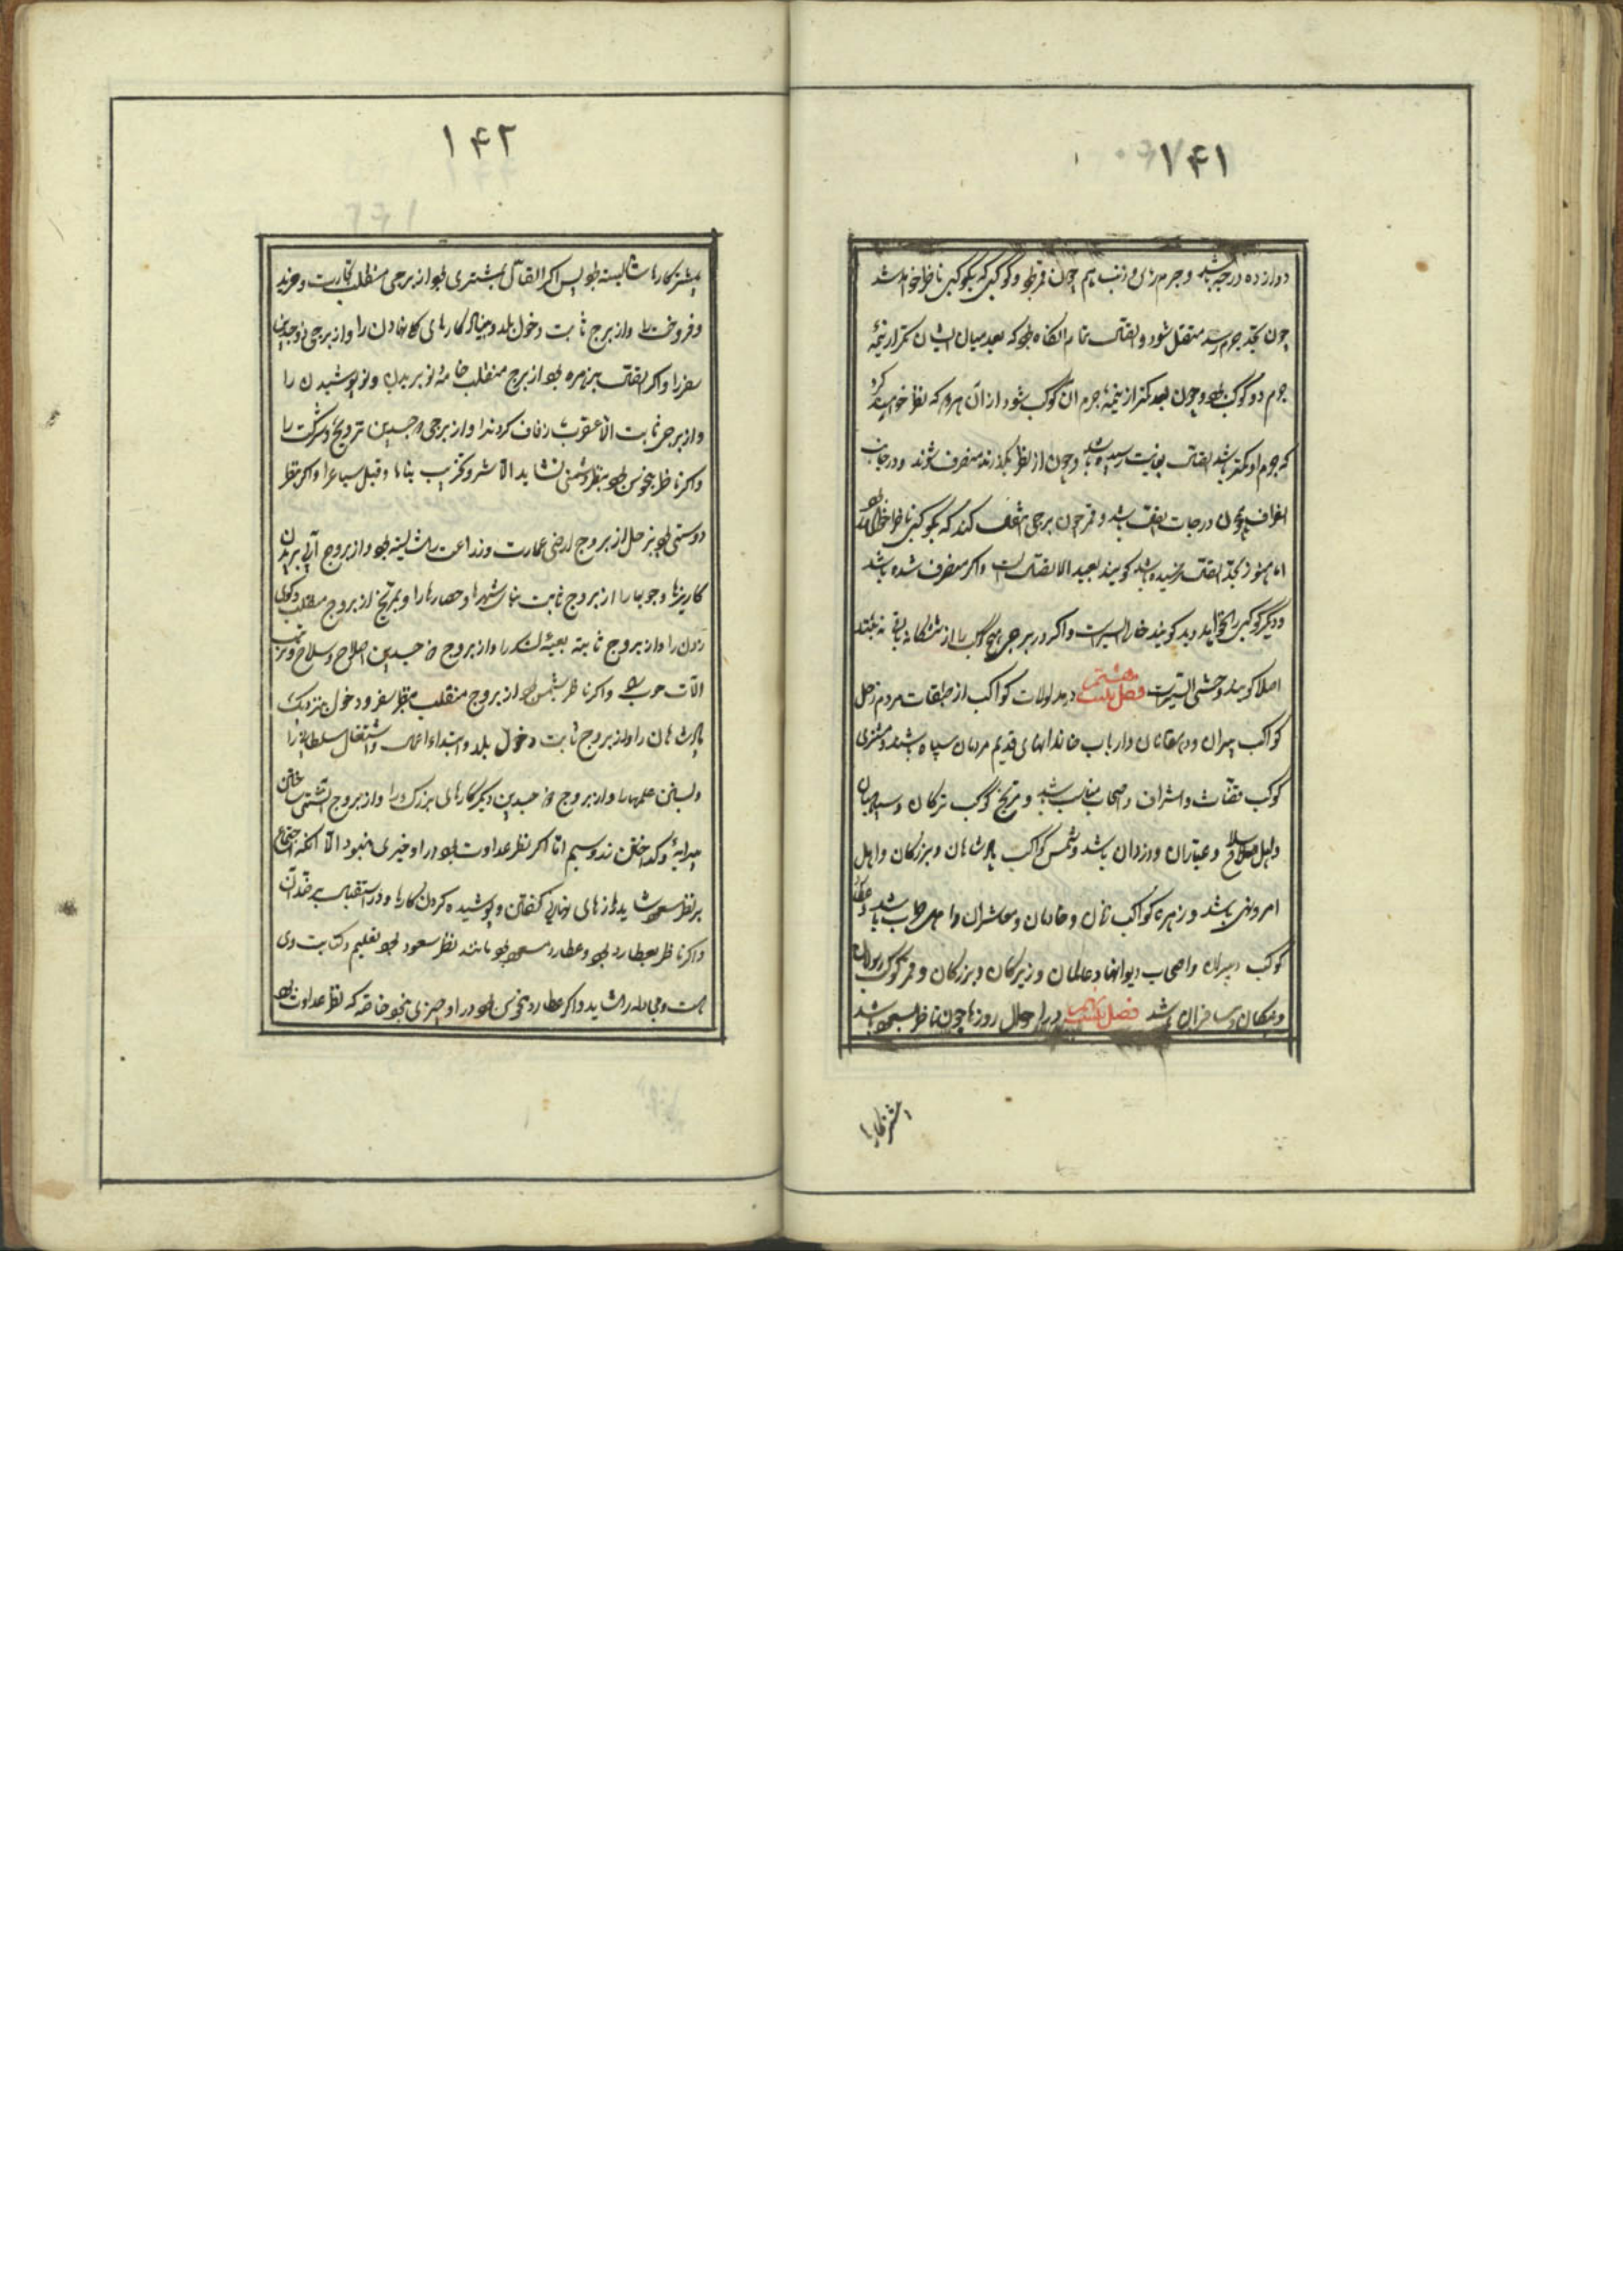 ۱۴۱
دوازده درجه باشد و جرم راس و ذنب هم چون قمر بود و کوکبی که بکوکبی ناظر خواهد شد
چون بحد جرم رسد متصل شود و اتصال تمام آنگاه بود که بعد میان ایشان کمتر از نیمهٔ
جرم دو کوکب بود و چون بعد کمتر از نیمهٔ جرم آن کوکب شود از آن هر دو که نظر خواهند کرد
که جرم او کمتر باشد اتصال بغایت رسیده باشد و چون از نظر بگذرند منصرف شوند و درجات
انصراف همچون درجات اتصال باشد و قمر چون برجی انتقال کند که بکوکبی ناظر خواهد بود
اما هنوز بحد اتصال نرسیده باشد گویند بعید الاتصال است و اگر منصرف شده باشد
و دیگر کوکبی را نخواهد دید گویند خالی السیر است و اگر در برجی هیچ کوکب را از ششگانه باقی نه بیند
اصلا گویند وحشی السیر است فصل بیست هشتم در مدلولات کواکب از طبقات مردم زحل
کوکب پیران و دهقانان و ارباب خاندانهای قدیم مردمان سیاه باشند و مشتری
کوکب قضات و اشراف و اصحاب مناصب باشد و مریخ کوکب ترکان و سپاهیان
و اهل سلاح و عیاران و دزدان باشد و شمس کوکب پادشاهان و بزرگان و اهل
امر و نهی باشد و زهره کواکب زنان و خادمان و معاشران و اهل طرب باشد و عطارد
کوکب دبیران و اصحاب دیوانها و عالمان و زیرکان و بزرگان و قمر کوکب رسولان
و پیکان و مسافران باشد فصل بیست نهم در احوال روزها چون ناظر بسعود باشد
بیشتر کارها
۱۴۲
بیشتر کارها شایسته بود پس اگر اتصال بمشتری بود از برجی منقلب تجارت و خرید
و فروخت را و از برج ثابت دخول بلد و بنیاد کارهای نهادن را و از برجی ذو جسدین
سفر را و اگر اتصال بزهره بود از برج منقلب جامهٔ نو بریدن و نو پوشیدن را
و از برجی ثابت الا عقرب زفاف کردن را و از برجی ذو جسدین تزویج و شرکت را
و اگر ناظر بنحوس بود بنظر دشمنی نشاید الا شر و تخریب بناها و قتل سباع را و اگر بنظر
دوستی بود بزحل از بروج ارضی عمارت و زراعت را شایسته بود و از بروج آبی بریدن
کاریزها و جویها را از بروج ثابت بنای شهرها و حصارها را و بمریخ از بروج منقلب و کوی
زدن را و از بروج ثابته تعبیهٔ لشکر را و از بروج ذو جسدین اصلاح سلاح و ترتیب
آلات حرب را و اگر ناظر بشمس بود از بروج منقلب بنظر سفر و دخول بنزدیک
پادشاهان را و از بروج ثابت دخول بلد و ابتداء اعمال و اشتغال سلطانی را
و بستن علمها را و از بروج ذو جسدین دیگر کارهای بزرگ را و از بروج آتشی ساختن
پیرایه و گداختن زر و سیم اما اگر نظر عداوت بود در او خیری نبود الا آنکه اجتماع
بر نظر سعود شاید رازهای نهانی گفتن و پوشیده کردن کارها و در استقبال بر ضد آن
و اگر ناظر بعطارد بود و عطارد مسعود بود مانند نظر سعود بود تعلیم و کتابت وی
است و مجادله را شاید و اگر عطارد منحوس بود در او چیزی نبود خاصه که نظر عداوت بود